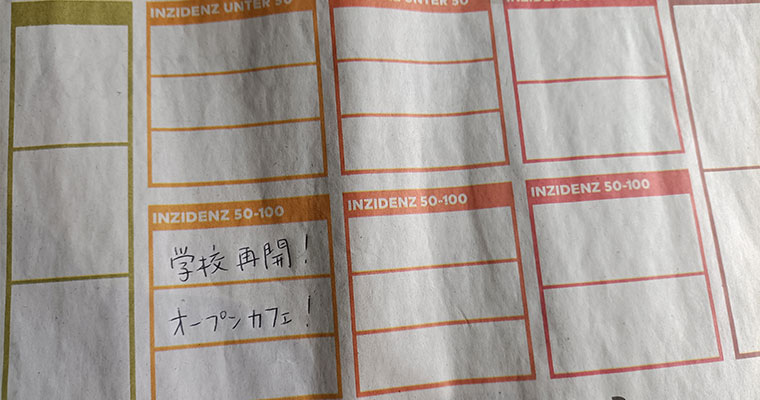 INZIDENZ UNTER 50
UNTER 50
INZIDENZ 50-100
学校再開!
オープンカフェ!
INZIDENZ 50-100
INZIDENZ 50-100